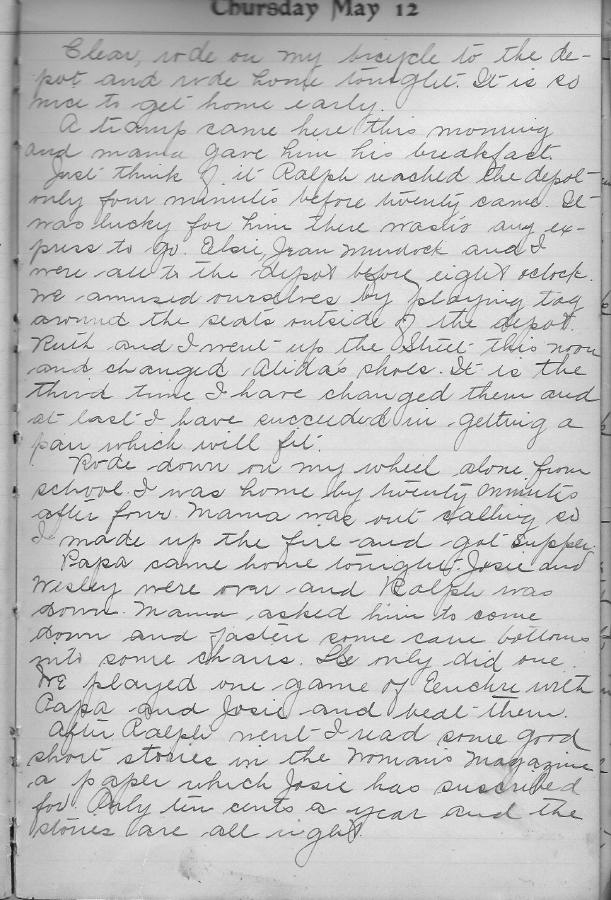 Thursday May 12
Clear, rode on my bicycle to the de-
pot and rode home tonight. It is so
nice to get home early.
A tramp came here this morning
and mama gave him his breakfast.
Just think of it Ralph reached the depot
only four minutes before twenty came. It
was lucky for him there was no ex-
press to go. Elsie, Jean Murdock and I
were all to the depot before eight oclock.
We amused ourselves by playing tag
around the seats outside of the depot.
Ruth and I went up the Street this noon
and changed Alida's shoes. It is the
third time I have changed them and
at last I have succeeded in getting a
pair which will fit.
Rode down on my wheel alone from
school. I was home by twenty minutes
after four. Mama was out calling so
I made up the fire and got supper.
Papa came home tonight. Josie and
Wesley were over and Ralph was
down. Mama asked him to come
down and fasten some cane bottoms
into some chairs. He only did one.
We played one game of Euchre with
Papa and Josie and beat them.
After Ralph went I read some good
short stories in the Woman's Magazine
a paper which Josie has suscribed
for. Only ten cents a year and the
stories are all right.